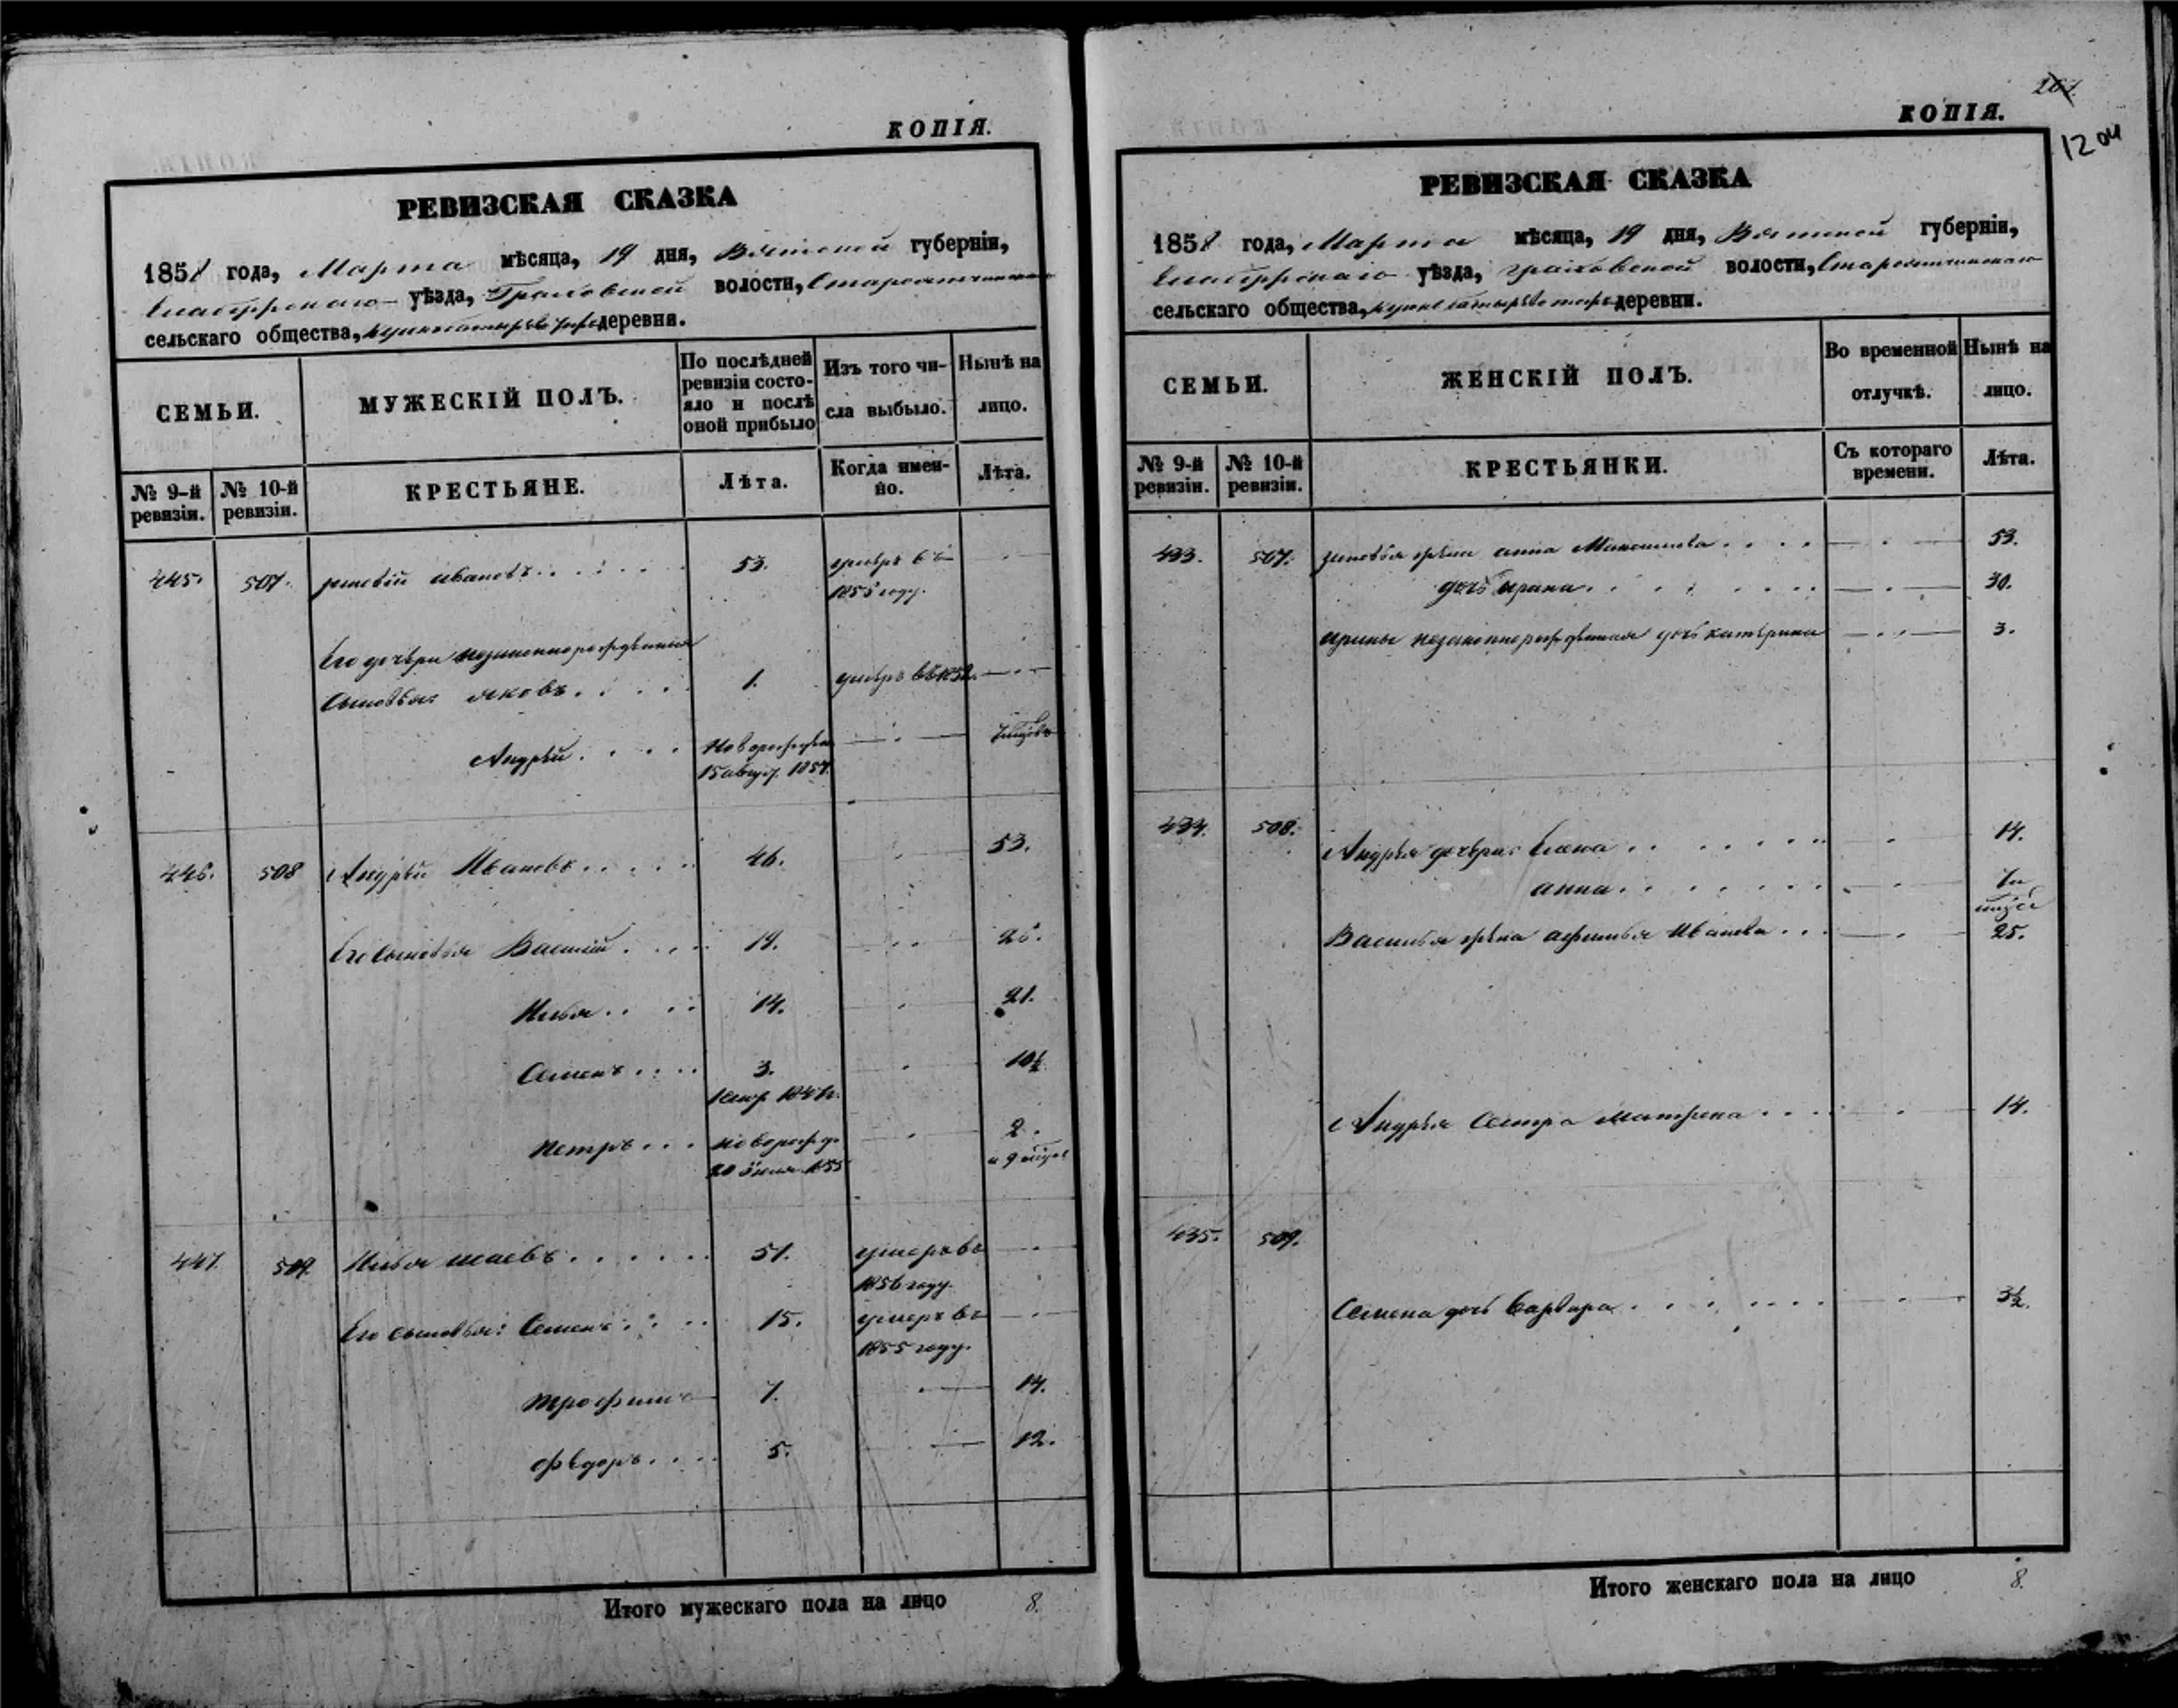 КОПІЯ.
РЕВИЗСКАЯ СКАЗКА
1858 года, Марта мѣсяца, 19 дня, Вятской губерніи,
Елабужскаго уѣзда, Граховской волости,
сельскаго общества, деревни.
СЕМЬИ.
МУЖЕСКІЙ ПОЛЪ.
По послѣдней ревизіи состояло и послѣ оной прибыло
Изъ того числа выбыло.
Нынѣ на лицо.
№ 9-й ревизіи.
№ 10-й ревизіи.
КРЕСТЬЯНЕ.
Лѣта.
Когда имен-но.
Лѣта.
445. 507. Ивановъ 53. умеръ въ
1855 году.
Его дочери незаконнорожденные
сыновья: Яковъ 1. умеръ въ
Андрей новорожден
15 август. 1857.
446. 508 Андрей Ивановъ 46. 53.
Его сыновья Василій 19. 26.
Илья 14. 21.
Семенъ 3. 10½
Петръ новорожд. 2.
20 1855 и 9 мѣсяц
447. 509. Илья 51. умеръ въ
1856 году.
Его сыновья: Семенъ 15. умеръ въ
1855 году.
Трофимъ 7. 14.
Федоръ 5. 12.
Итого мужескаго пола на лицо 8.
КОПІЯ.
1204
РЕВИЗСКАЯ СКАЗКА
1858 года, Марта мѣсяца, 19 дня, Вятской губерніи,
Елабужскаго уѣзда, Граховской волости,
сельскаго общества, деревни.
СЕМЬИ.
ЖЕНСКІЙ ПОЛЪ.
Во временной отлучкѣ.
Нынѣ на лицо.
№ 9-й ревизіи.
№ 10-й ревизіи.
КРЕСТЬЯНКИ.
Съ котораго времени.
Лѣта.
433. 507. жена Анна 53.
дочь Ирина 30.
Ирины незаконнорожденная дочь Катерина 3.
434. 508. Андрея дочери: Елена 14.
Анна
Василья жена Афимья Иванова 25.
Андрея сестра Матрена 14.
435. 509.
Семена дочь Варвара 3½.
Итого женскаго пола на лицо 8.